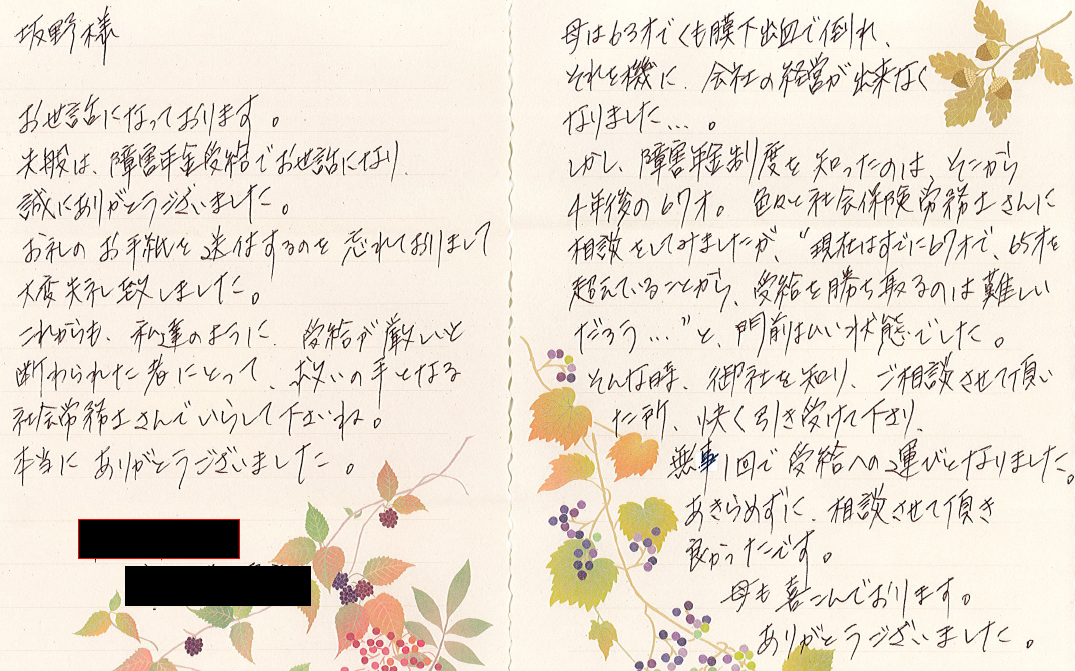 坂野様
お世話になっております。
先般は、障害年金受給でお世話になり、
誠にありがとうございました。
お礼のお手紙を送付するのを忘れておりまして
大変失礼致しました。
これからも、私達のように、受給が厳しいと
断わられた者にとって、救いの手となる
社会労務士さんでいらして下さいね。
本当にありがとうございました。
母は63才でくも膜下出血で倒れ、
それを機に、会社の経営が出来なく
なりました…。
しかし、障害年金制度を知ったのは、そこから
4年後の67才。色々と社会保険労務士さんに
相談をしてみましたが、“現在はすでに67才で、65才を
超えていることから、受給を勝ち取るのは難しい
だろう…”と、門前払い状態でした。
そんな時、御社を知り、ご相談させて頂い
た所、快く引き受けて下さり、
無事1回で受給への運びとなりました。
あきらめずに、相談させて頂き
良かったです。
母も喜こんでおります。
ありがとうございました。